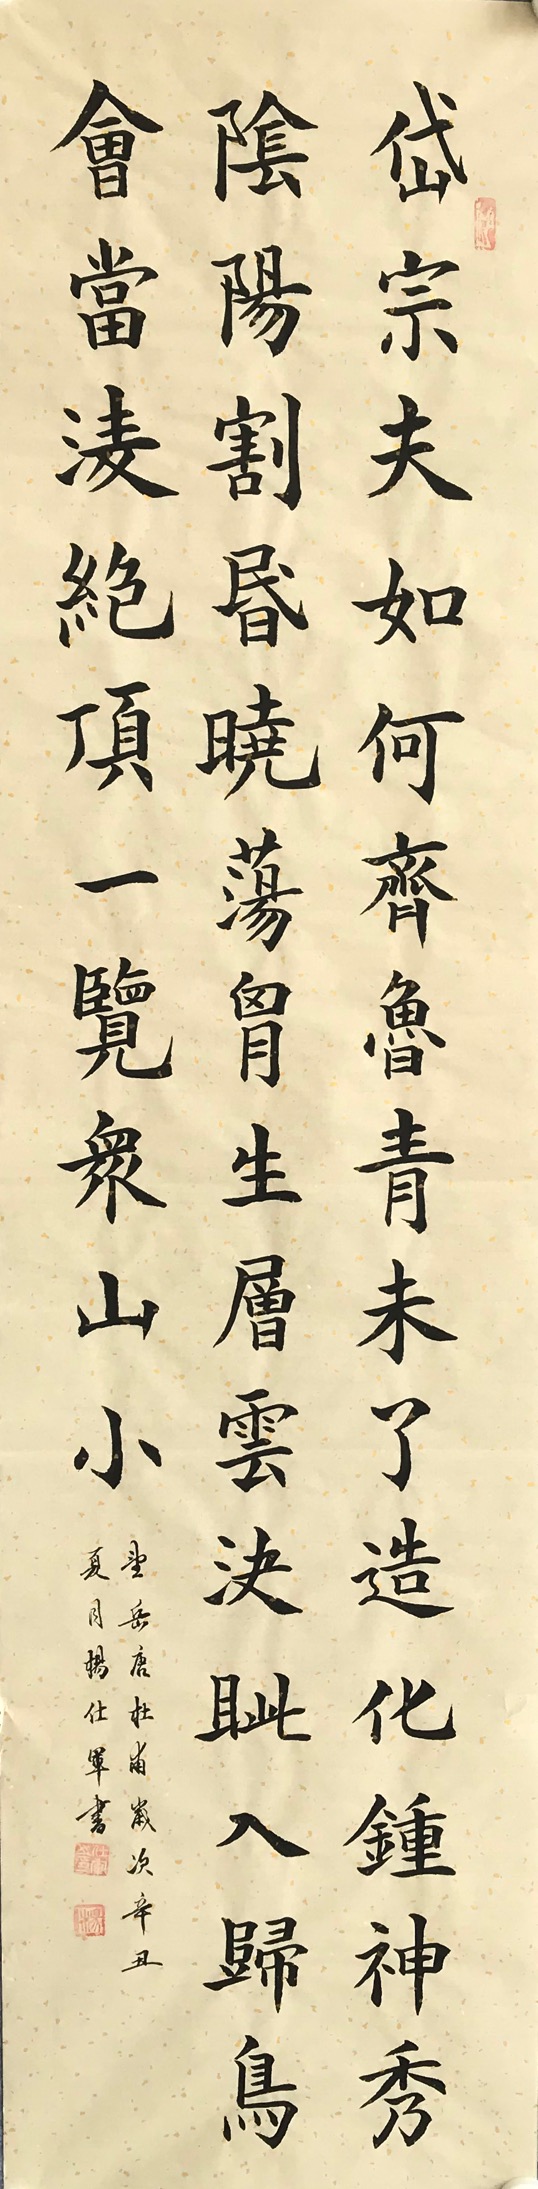 岱宗夫如何齊魯青未了造化鍾神秀
陰陽割昏曉蕩胷生層雲決眦入歸鳥
會當淩絕頂一覽衆山小
望岳唐杜甫歲次辛丑
夏月楊仕軍書